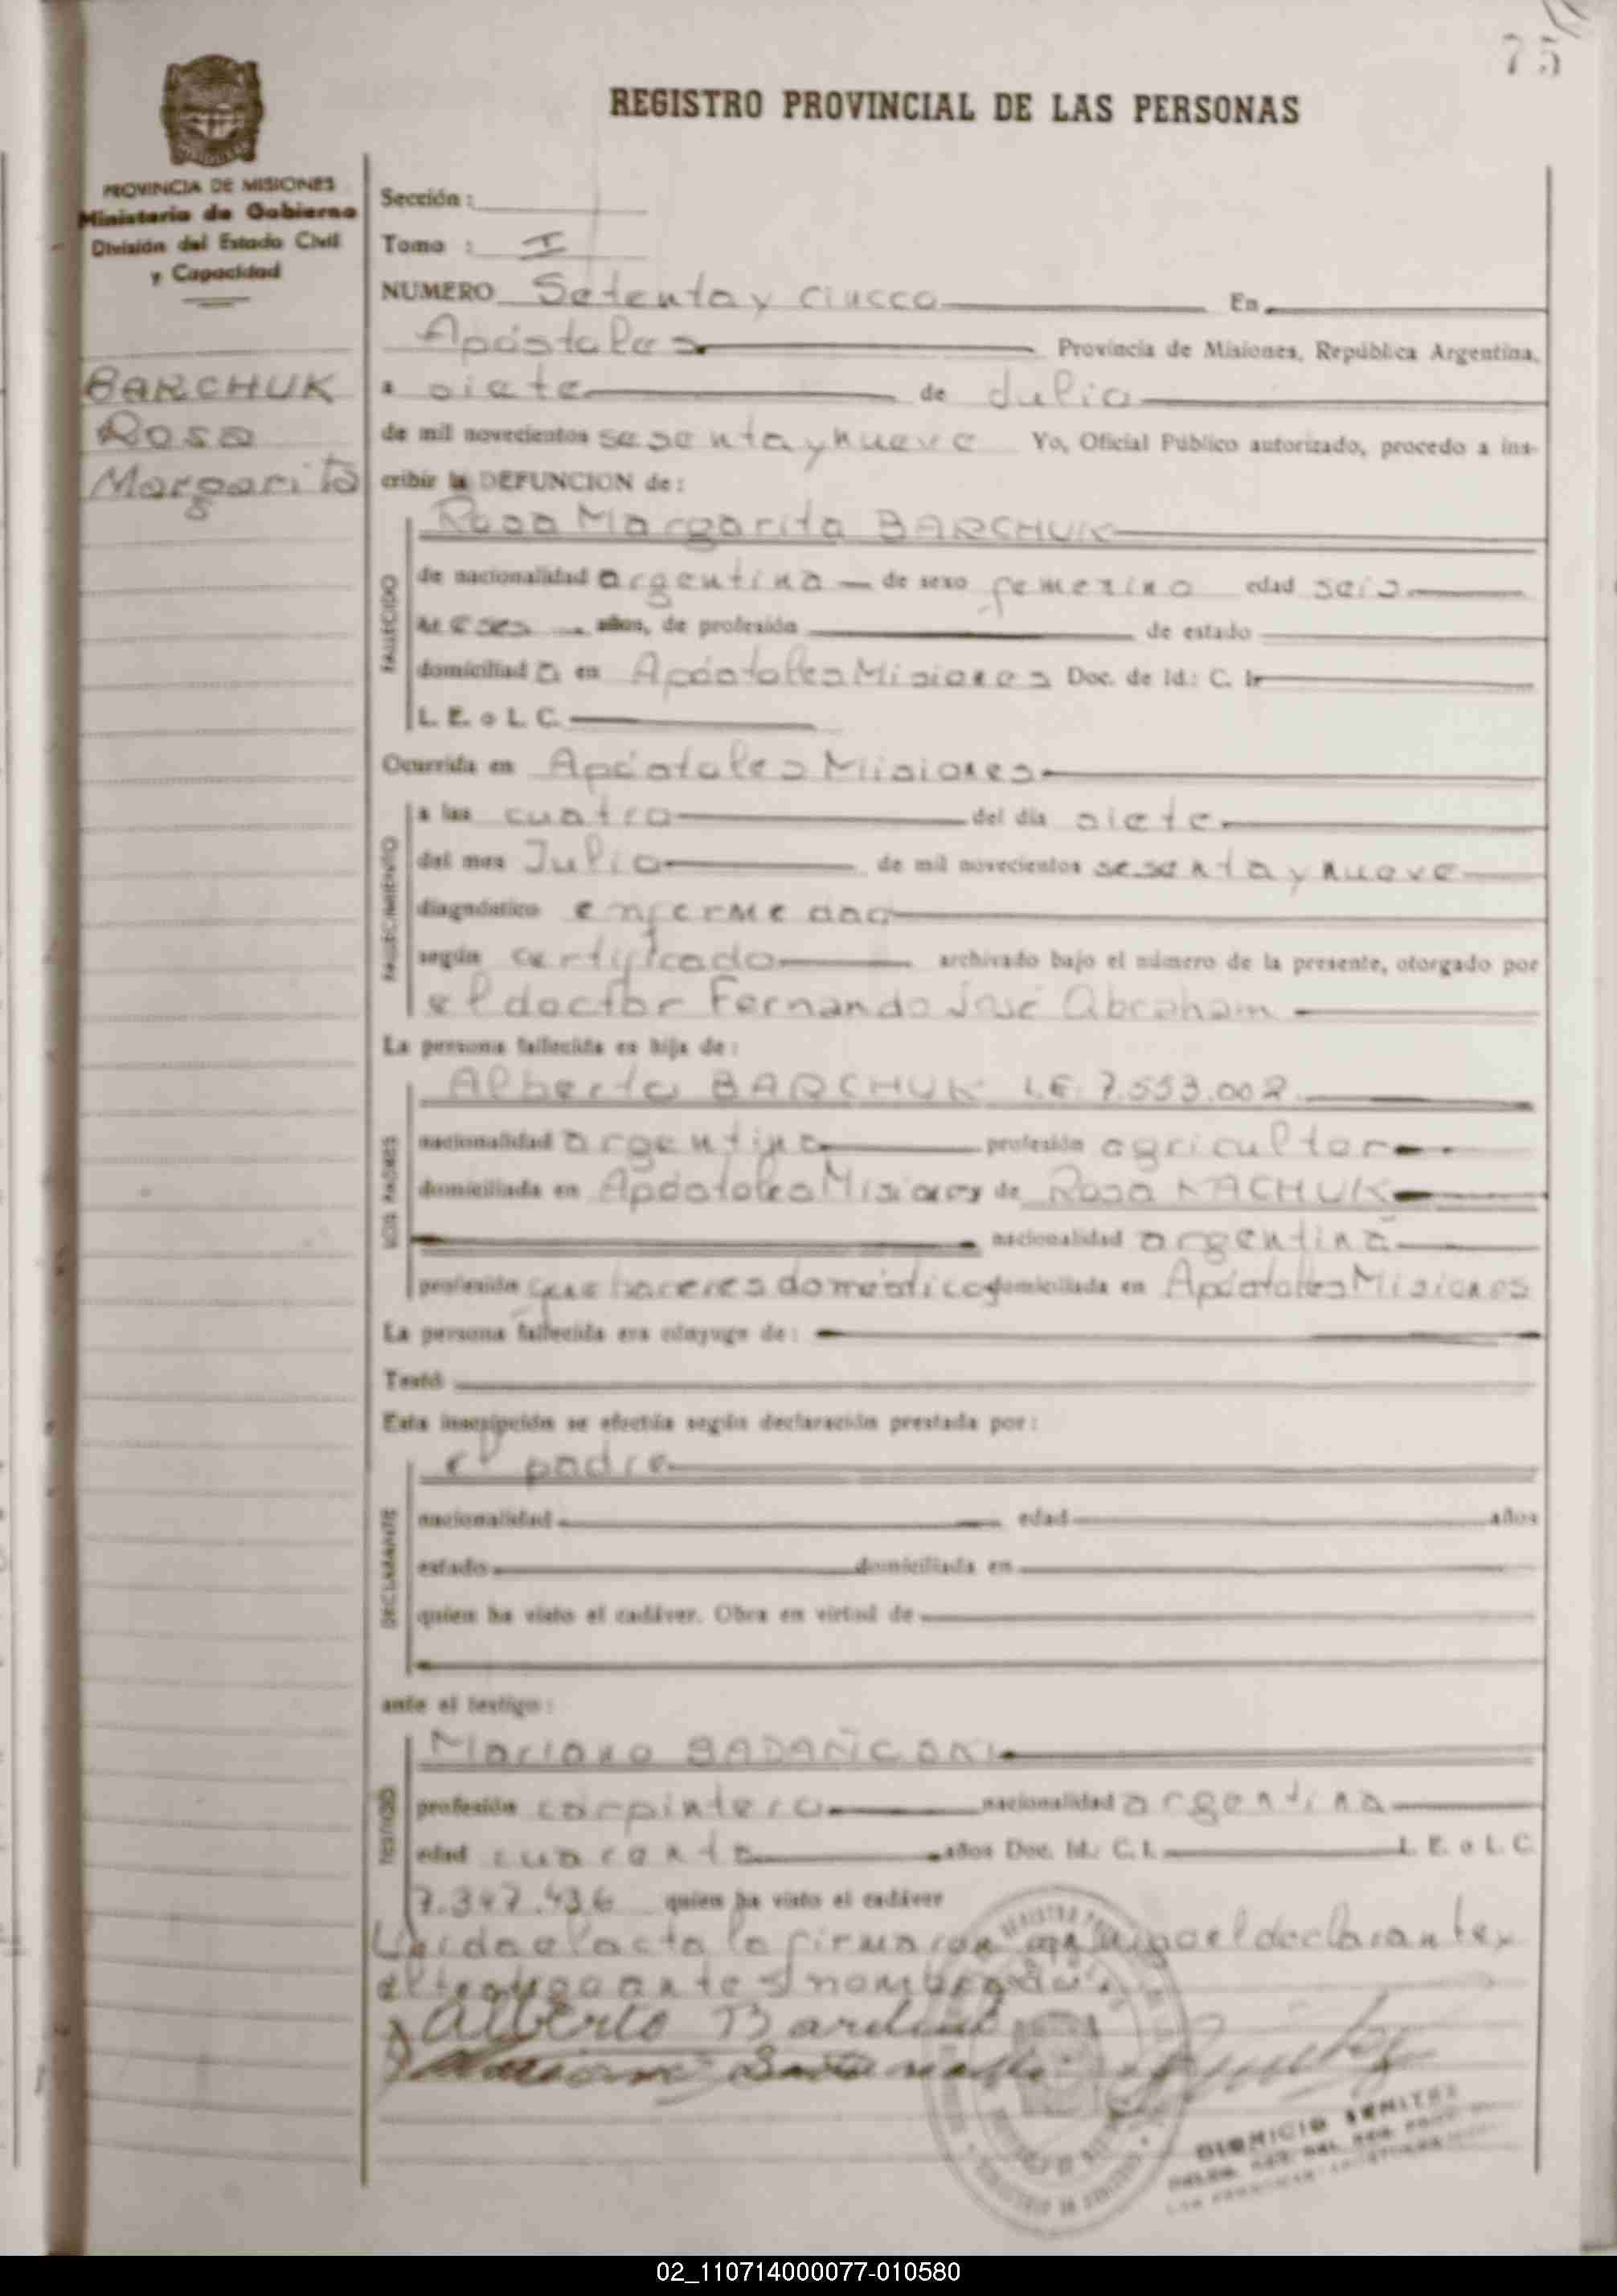 75
REGISTRO PROVINCIAL DE LAS PERSONAS
PROVINCIA DE MISIONES
Ministerio de Gobierno
División del Estado Civil
y Capacidad
BARCHUK
Rosa
Margarita
Sección :
Tomo : I
NUMERO Setenta y cinco En
Apóstoles Provincia de Misiones, República Argentina,
a siete de Julio
de mil novecientos sesenta y nueve Yo, Oficial Público autorizado, procedo a ins-
cribir la DEFUNCION de :
FALLECIDO
Rosa Margarita BARCHUK
de nacionalidad argentina de sexo femenino edad seis
meses años, de profesión de estado
domiciliad a en Apóstoles Misiones Doc. de Id.: C. I.
L. E. o L. C.
Ocurrida en Apóstoles Misiones
FALLECIMIENTO
a las cuatro del día siete
del mes Julio de mil novecientos sesenta y nueve
diagnóstico enfermedad
según certificado archivado bajo el número de la presente, otorgado por
el doctor Fernando José Abraham
La persona fallecida es hija de :
SUS PADRES
Alberto BARCHUK L.E. 7.553.002
nacionalidad argentina profesión agricultor
domiciliada en Apóstoles Misiones de Rosa KACHUK
nacionalidad argentina
profesión quehaceres domésticos domiciliada en Apóstoles Misiones
La persona fallecida era cónyuge de :
Testó
Esta inscripción se efectúa según declaración prestada por :
DECLARANTE
el padre
nacionalidad edad años
estado domiciliada en
quien ha visto el cadáver. Obra en virtud de
ante el testigo :
TESTIGO
Mariano
profesión carpintero nacionalidad argentina
edad cuarenta años Doc. Id.: C. I. L. E. o L. C.
7.347.436 quien ha visto el cadáver
Leida el acta la firman conmigo el declarante y
el testigo antes nombrados.
Alberto Barchuk
DIONICIO BENITEZ
02_110714000077-010580